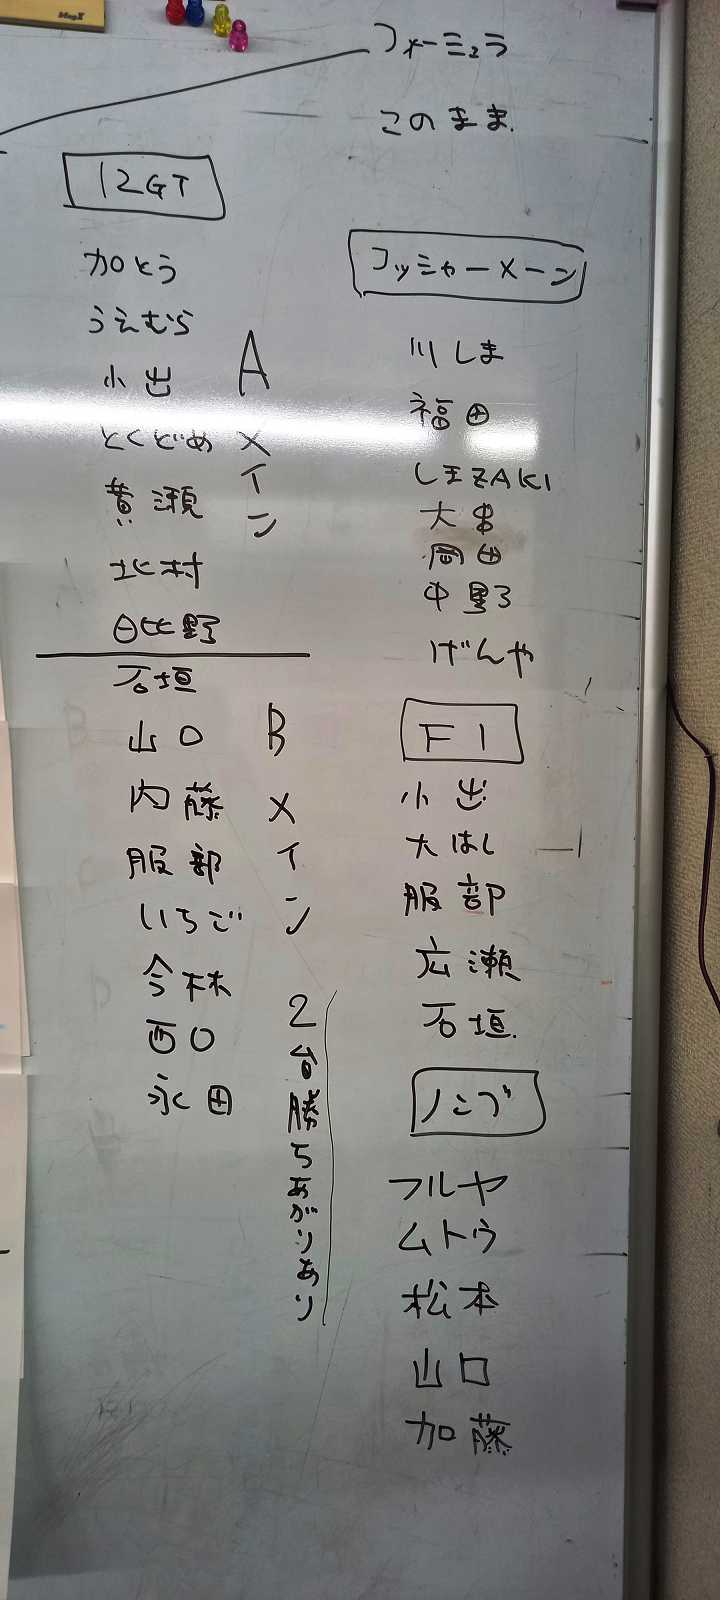 フォーミュラ
このまま.
12GT
加とう
うえむら
小出
とくどめ
黄瀬
北村
日比野
Aメイン
石垣
山口
内藤
服部
いちご
今林
西口
永田
Bメイン
2台勝ちあがりあり
フッシャーメーン
川しま
福田
大串
岡田
中野
げんや
F1
小出
大はし
服部
広瀬
石垣.
ノニブ
フルヤ
ムトウ
松本
山口
加藤